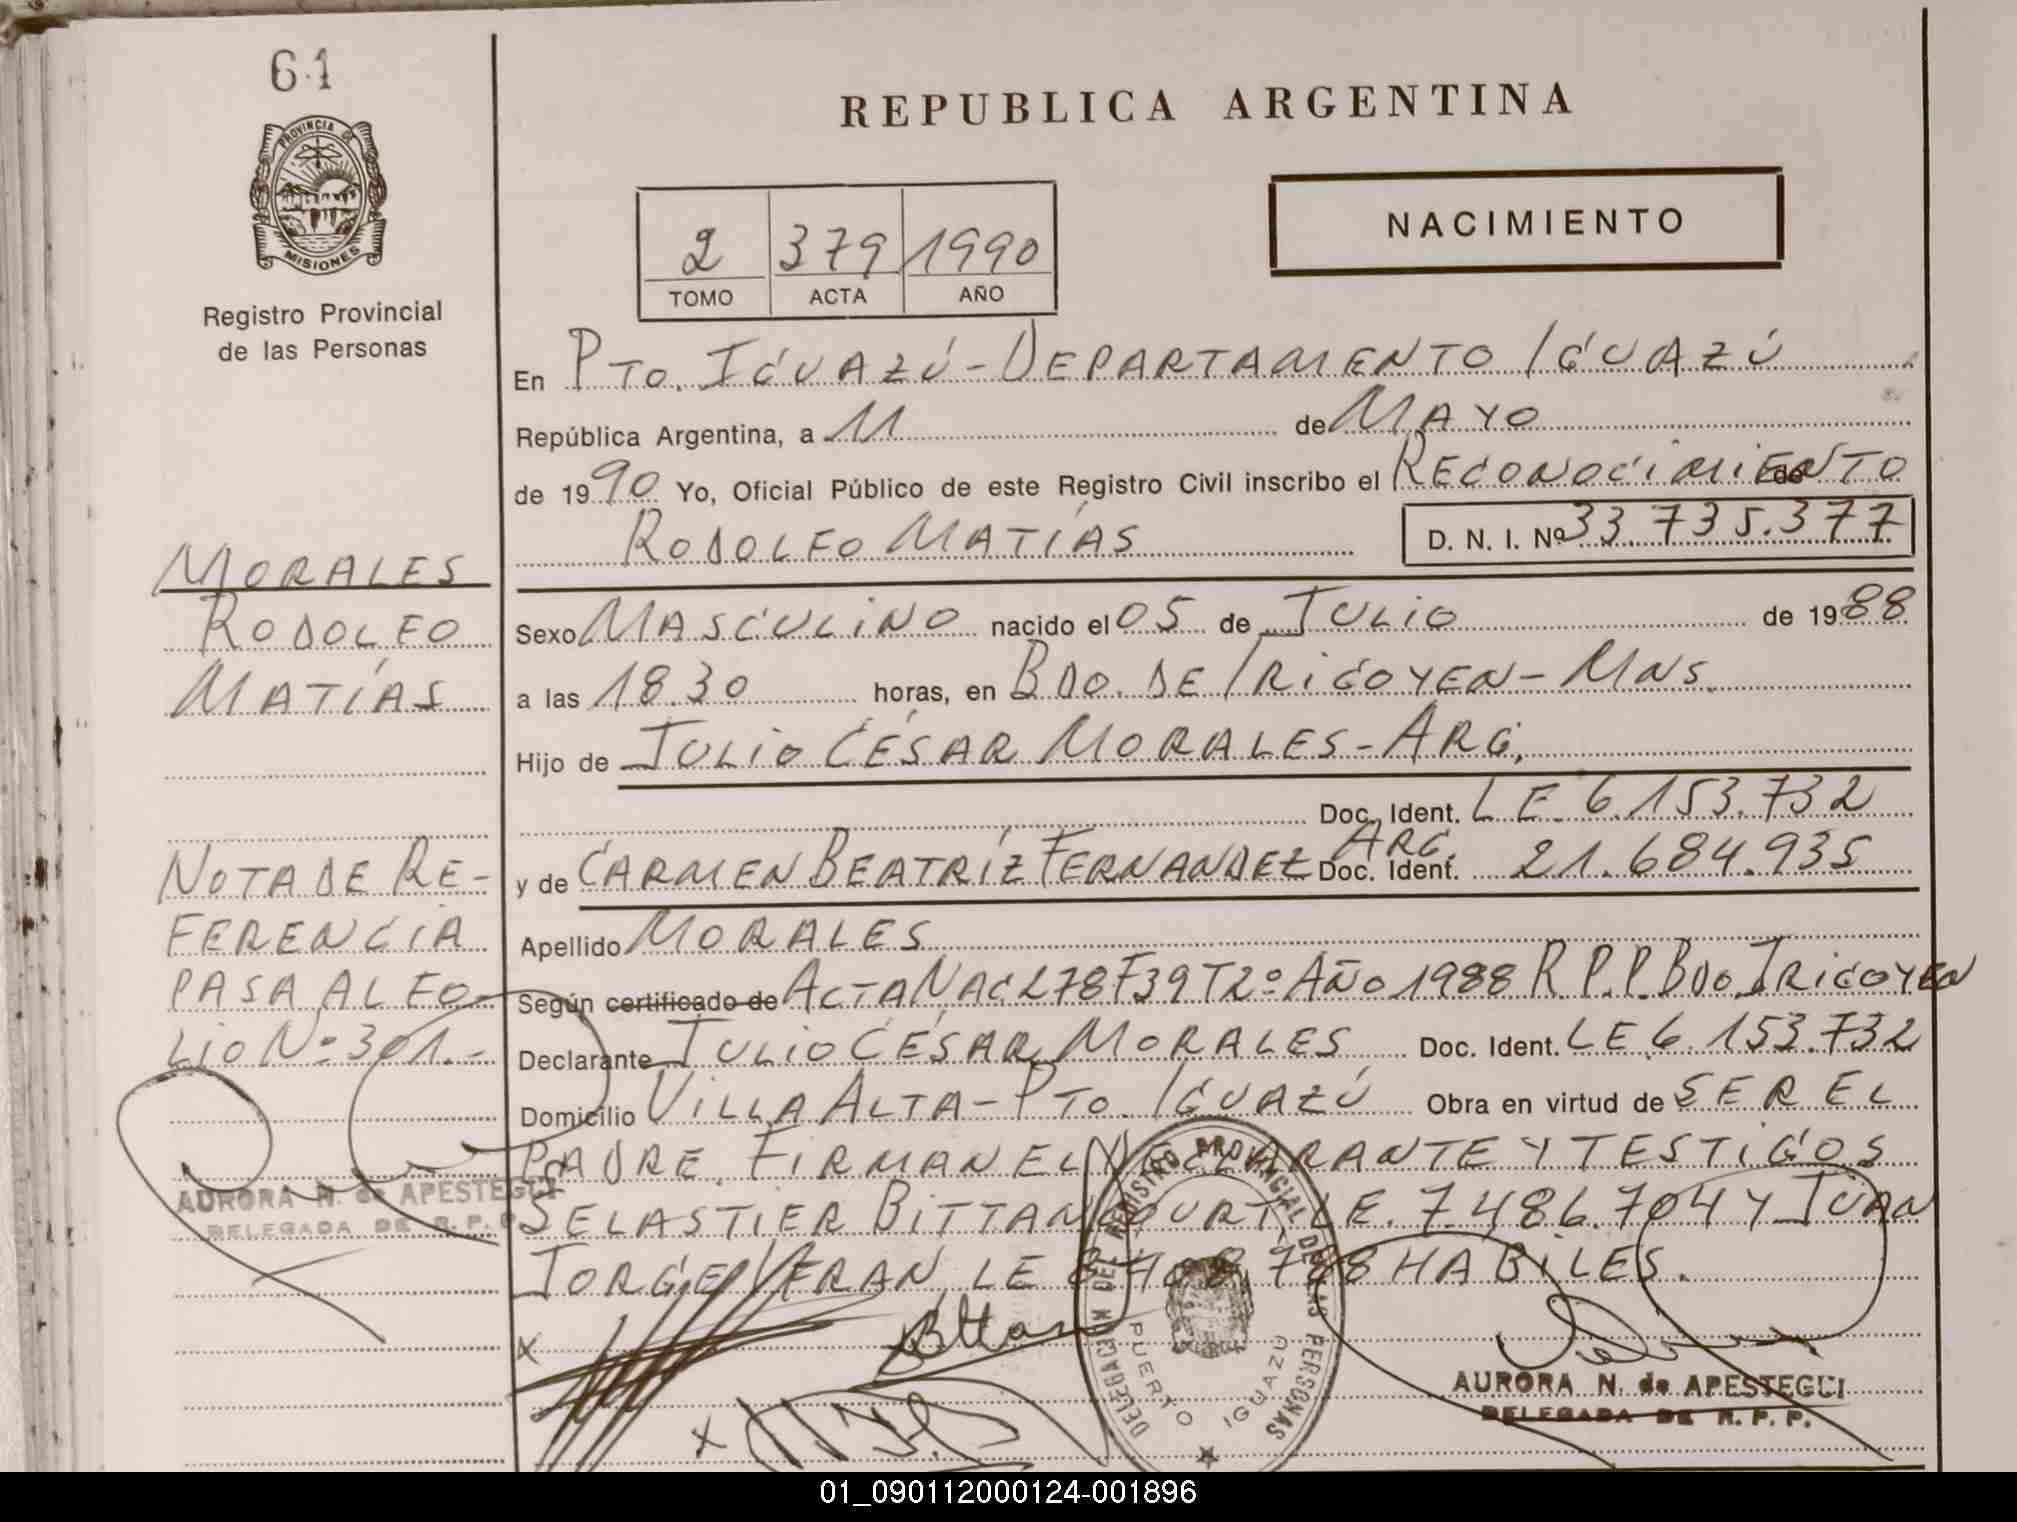 61
REPUBLICA ARGENTINA
PROVINCIA DE
MISIONES
Registro Provincial
de las Personas
2 379 1990
TOMO ACTA AÑO
NACIMIENTO
En PTO. IGUAZÚ - DEPARTAMENTO IGUAZÚ
República Argentina, a 11 de MAYO
de 1990 Yo, Oficial Público de este Registro Civil inscribo el RECONOCIMIENTO de
RODOLFO MATÍAS D. N. I. Nº 33.735.377
MORALES
RODOLFO
MATÍAS
Sexo MASCULINO nacido el 05 de JULIO de 1988
a las 18.30 horas, en BDO. DE IRIGOYEN - MNS.
Hijo de JULIO CÉSAR MORALES - ARG.
Doc. Ident. LE. 6.153.732
y de CARMEN BEATRÍZ FERNANDEZ ARG. Doc. Ident. 21.684.935
Apellido MORALES
Según certificado de ACTA NAC 278 F39 T2º AÑO 1988 R.P.P. BDO. IRIGOYEN
Declarante JULIO CÉSAR MORALES Doc. Ident. LE 6.153.732
Domicilio VILLA ALTA - PTO. IGUAZÚ Obra en virtud de SER EL
PADRE. FIRMAN EL DECLARANTE Y TESTIGOS
SELASTIER BITTANCOURT LE. 7.486.704 Y JUAN
JORGE VERAN LE 788 HABILES.
NOTA DE RE-
FERENCIA
PASA AL FO-
LIO Nº 301.-
AURORA N. de APESTEGUI
DELEGADA DE R. P. P.
DELEGACION DEL REGISTRO PROVINCIAL DE LAS PERSONAS
PUERTO IGUAZU
X
X
AURORA N. de APESTEGUI
DELEGADA DE R. P. P.
01_090112000124-001896